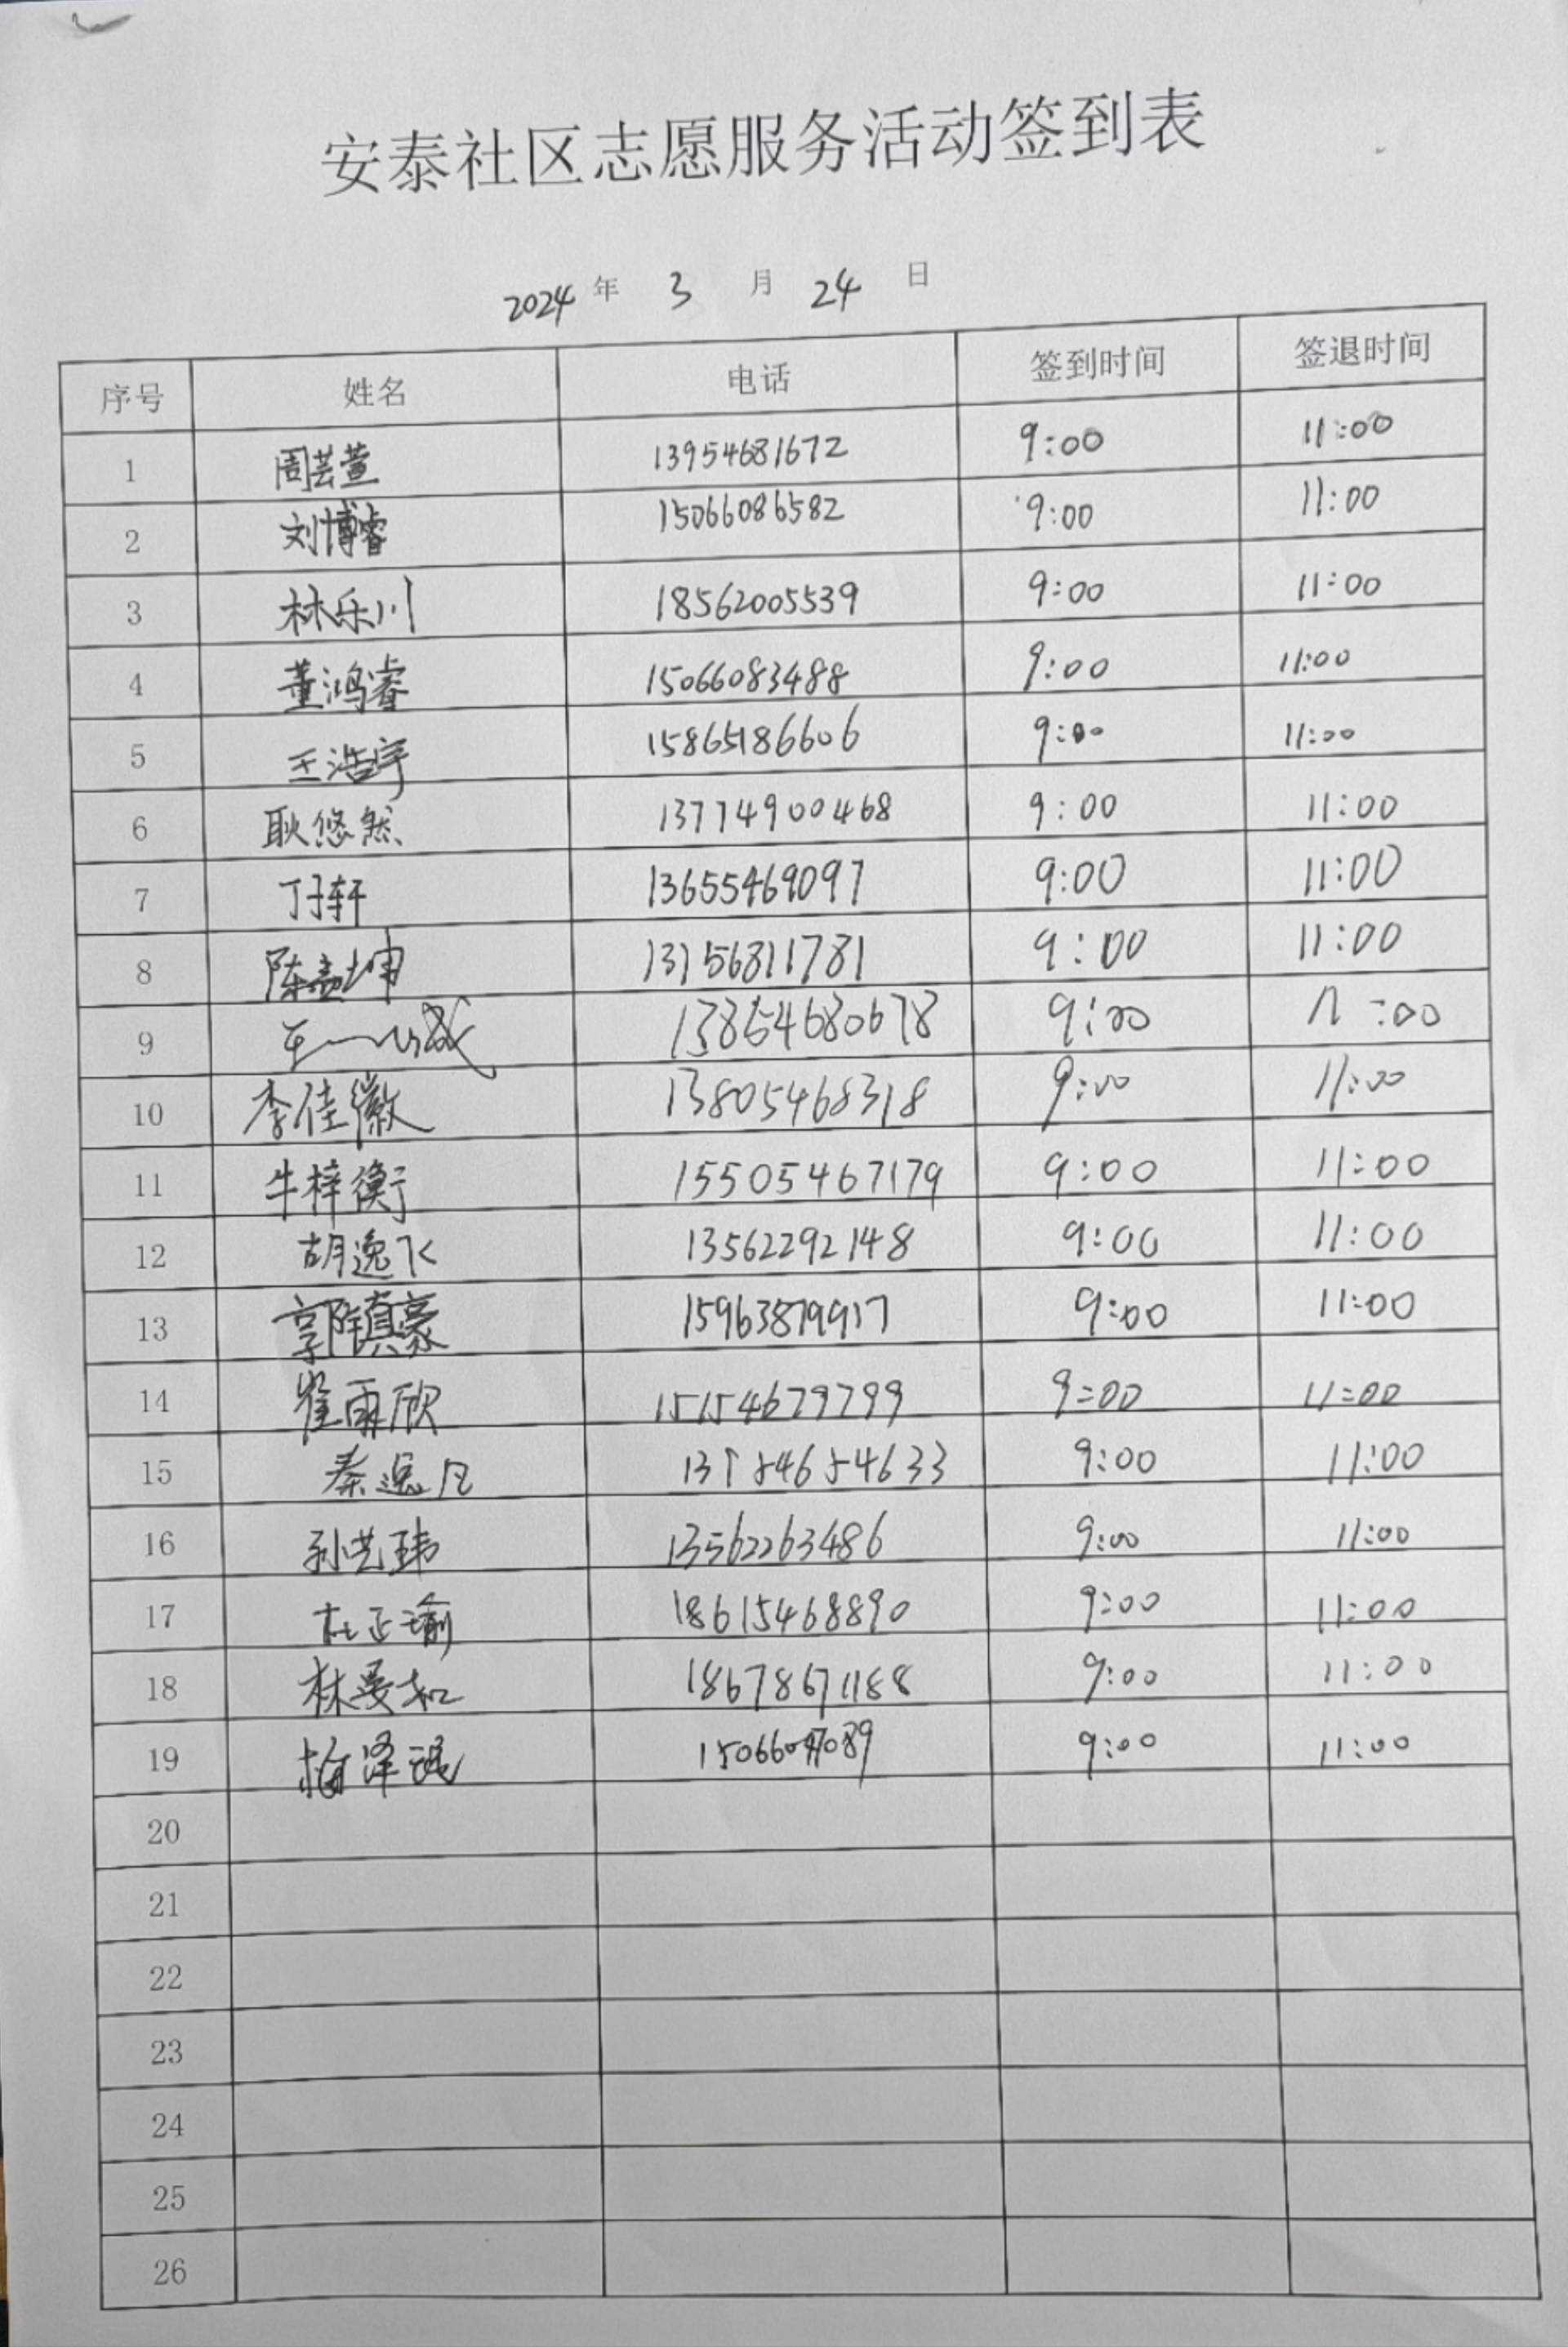 安泰社区志愿服务活动签到表
2024 年 3 月 24 日
序号 姓名 电话 签到时间 签退时间
1 周芸萱 13954681672 9:00 11:00
2 刘博睿 15066086582 9:00 11:00
3 林乐川 18562005539 9:00 11:00
4 董鸿睿 15066083488 9:00 11:00
5 王浩宇 15865186606 9:00 11:00
6 耿悠然 13774900468 9:00 11:00
7 丁子轩 13655469097 9:00 11:00
8 陈孟坤 13156811781 9:00 11:00
9 13864680678 9:00 11:00
10 李佳徽 13805468318 9:00 11:00
11 牛梓衡 15505467179 9:00 11:00
12 胡逸飞 13562292148 9:00 11:00
13 15963879917 9:00 11:00
14 崔雨欣 15154679799 9:00 11:00
15 秦逸凡 9:00 11:00
16 孙艺玮 13562263486 9:00 11:00
17 杜正瑜 18615468890 9:00 11:00
18 18678671188 9:00 11:00
19 9:00 11:00
20
21
22
23
24
25
26